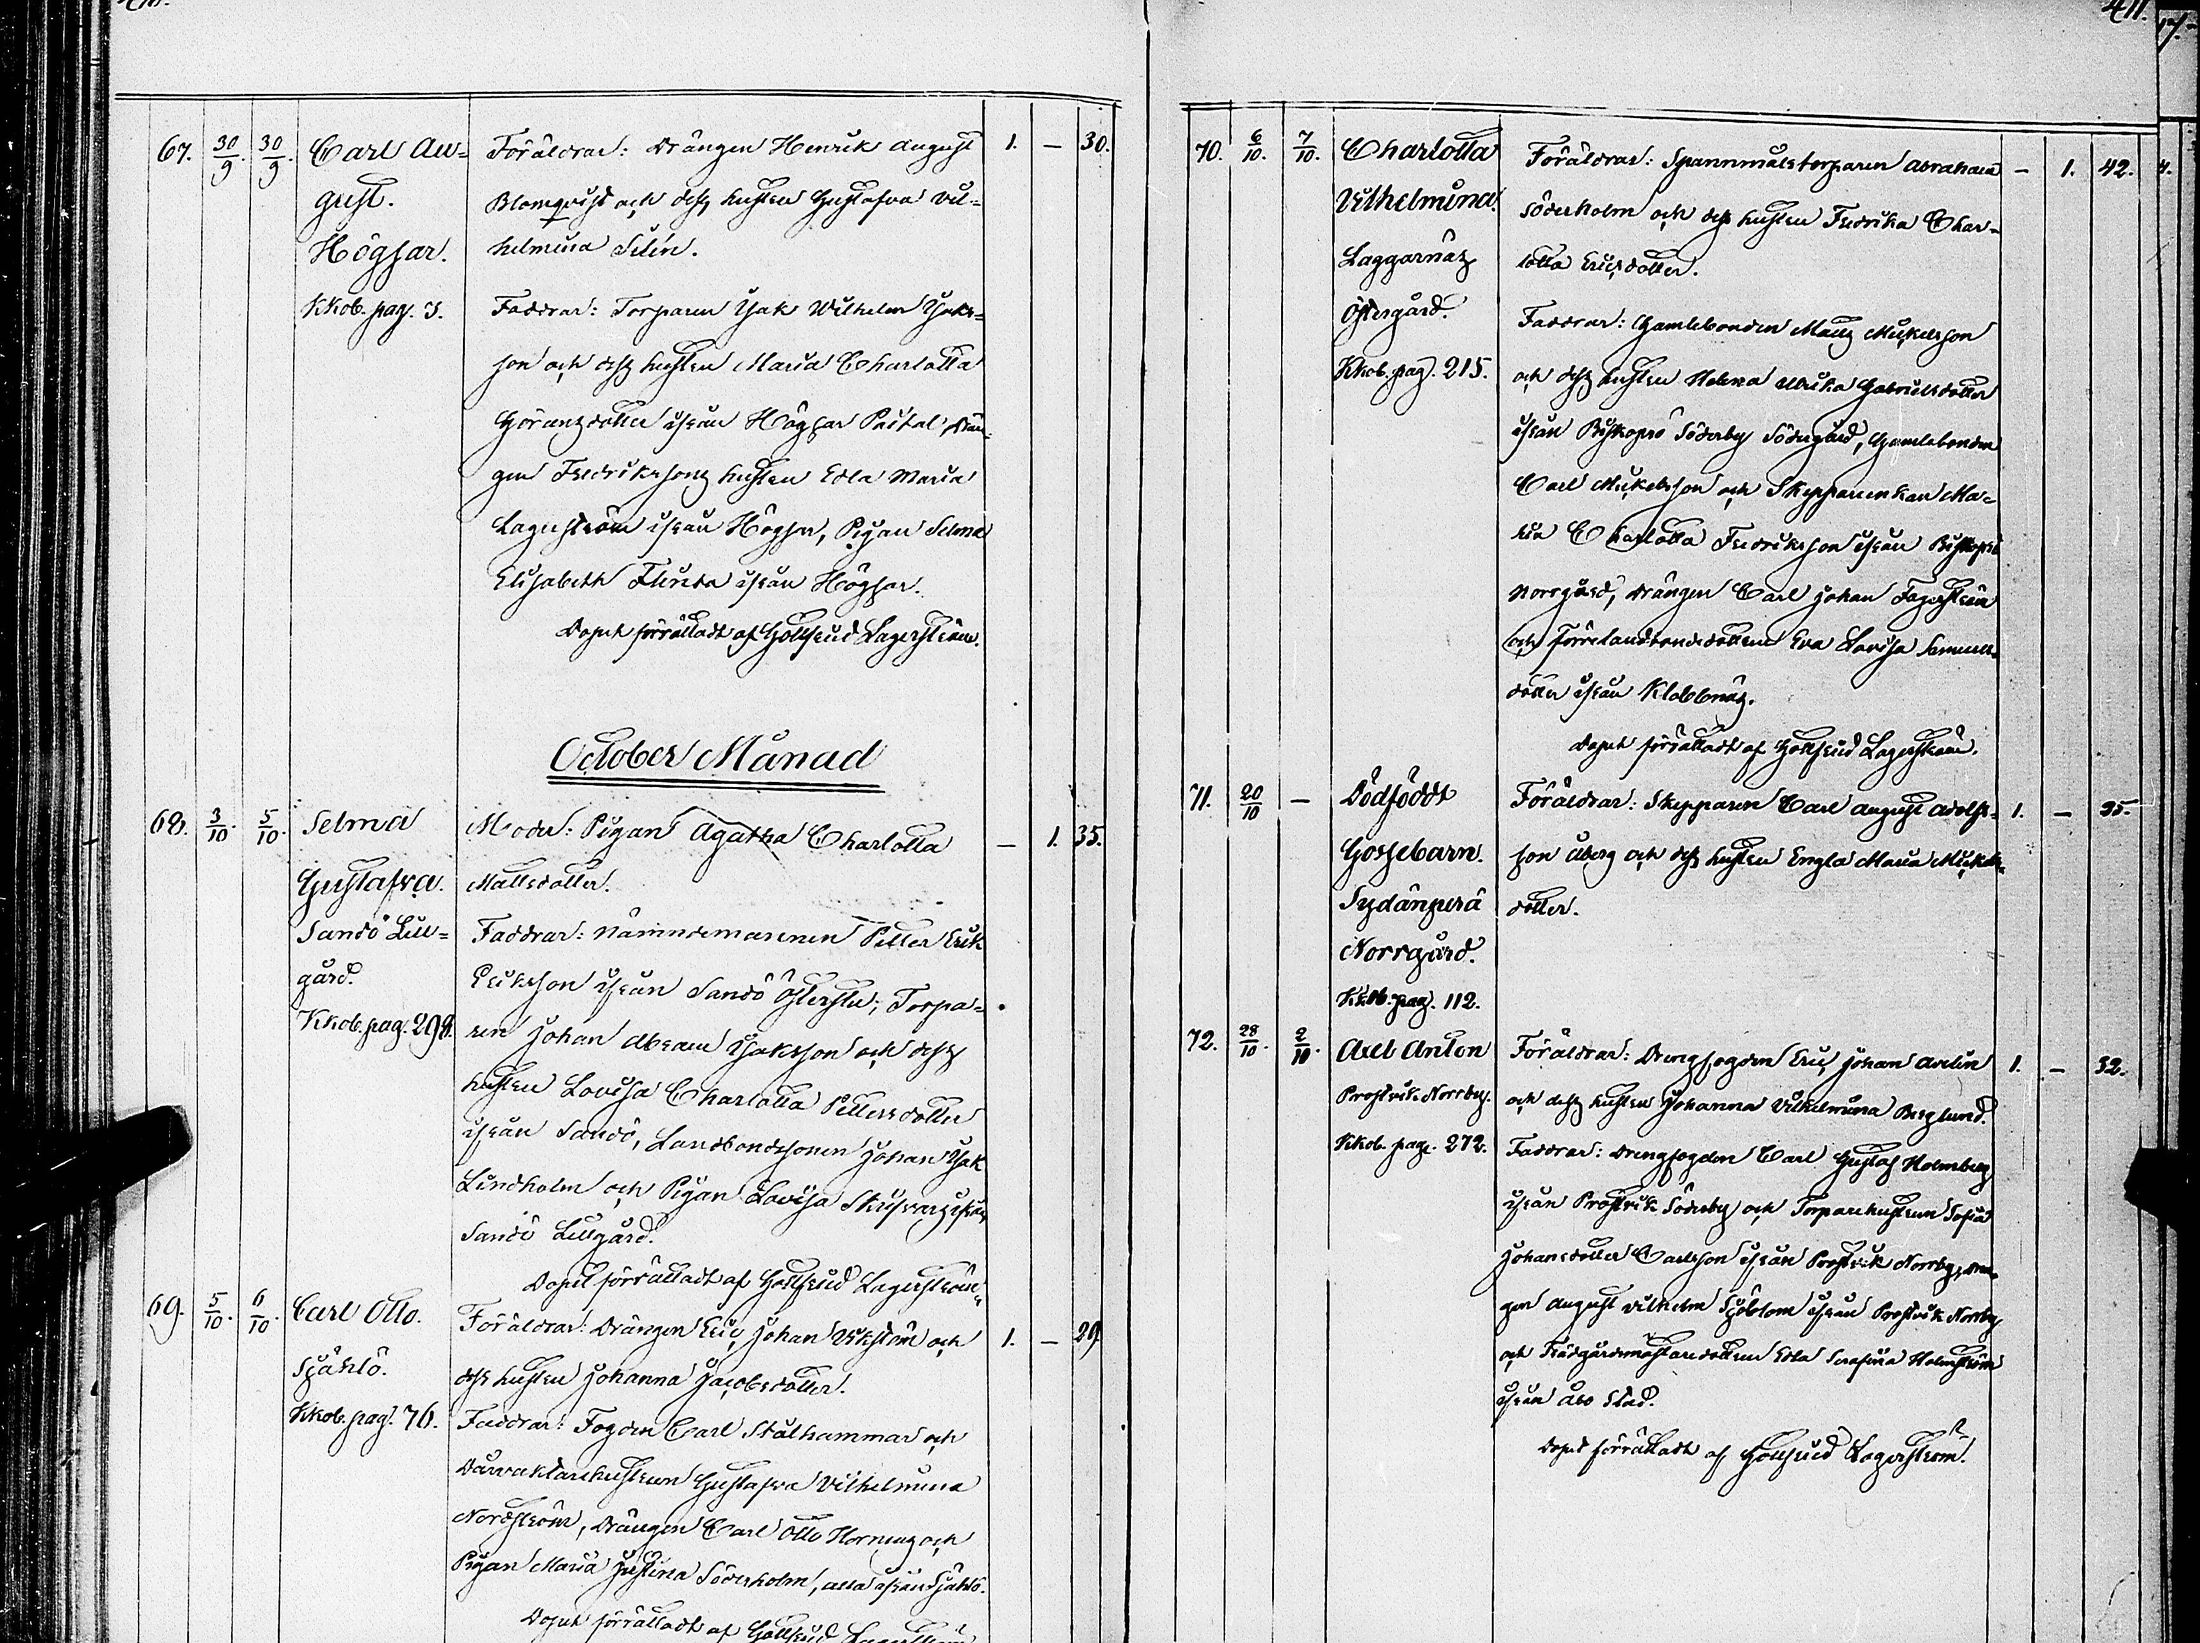 411.
67. 30/9. 30/9. Carl Au= Föräldrar: Drängen Henrik August 1. — 30.
gust. Blomqvist och dess hustru Gustafva Vil-
Högsar. helmina Selin.
Kkob. pag. 3. Faddrar: Torparen Isak Wilhelm Isaks=
son och dess hustru Maria Charlotta
Göransdotter ifrån Högsar Paital, Drän-
gen Fredrikssons hustru Edla Maria
Lagerström ifrån Högsar, Pigan Selma
Elisabeth Flinta ifrån Högsar.
Dopet förrättadt af Gottfrid Lagerström.
October Månad
68. 3/10. 5/10. Selma Moder: Pigan Agatha Charlotta — 1. 35.
Gustafva. Mattsdotter.
Sandö Lill= Faddrar: Nämndemannen Petter Erik
gård. Eriksson ifrån Sandö Östersta; Torpa=
Kkob. pag. 298. ren Johan Abram Isaksson och dess
hustru Lovisa Charlotta Pettersdotter
ifrån Sandö, Landbondsonen Johan Isak
Lindholm och Pigan Lovisa ifrån
Sandö Lillgård.
Dopet förrättadt af Gottfrid Lagerström.
69. 5/10. 6/10. Carl Otto. Föräldrar: Drängen Eric Johan Wikström och 1. — 29
Själö. dess hustru Johanna Jacobsdotter.
Kkob. pag. 76. Faddrar: Fogden Carl Stålhammar och
Dårvaktarehustrun Gustafva Vilhelmina
Nordström, Drängen Carl Otto Hornung och
Pigan Maria Justina Söderholm, alla ifrån Själö.
Dopet förrättadt af Gottfrid Lagerström
70. 6/10. 7/10. Charlotta Föräldrar: Spannmålstorparen Abraham — 1. 42.
Vilhelmina. Söderholm och dess hustru Fredrika Char=
Laggarnäs lotta Ericsdotter.
Östergård. Faddrar: Gamlebonden Matts Mickelsson
Kkob. pag. 215. och dess hustru Helena Ulrika Gabrielsdotter
ifrån Biskopsö Söderby Södergård, Gamlebonden
Carl Mickelsson och Skepparenkan Ma=
ria Charlotta Fredriksson ifrån Biskopsö
Norrgård, Drängen Carl Johan Fagerström
och Förrelandbondedottren Eva Lovisa Samuels-
dotter ifrån Klobbnäs.
Dopet förrättadt af Gottfrid Lagerström.
71. 20/10 — Dödfödt Föräldrar: Skepparen Carl August Adolfs- 1. — 35.
Gossebarn. son Åberg och dess hustru Engla Maria Mickels-
Sydänperä dotter.
Norrgård.
Kkob. pag. 112.
72. 28/10. 2/10. Axel Anton Föräldrar: Drengfogden Eric Johan Avelin 1. — 32.
Prostvik Norrby. och dess hustru Johanna Vilhelmina Berglund.
Kkob. pag. 272. Faddrar: Drengfogden Carl Gustaf Holmberg
ifrån Prostvik Söderby och Torparehustrun Sofia
Johansdotter Carlsson ifrån Prostvik Norrby, Drän-
gen August Vilhelm Sjöblom ifrån Prostvik Norrby
och Trädgårdsmästaredottren Edla Serafina Holmström
ifrån Åbo Stad.
Dopet förrättadt af Gottfrid Lagerström.